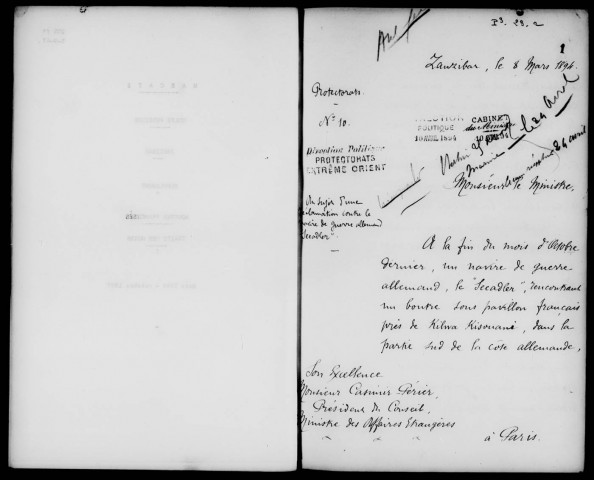 P9. 29. 2
1
Zanzibar, le 8 Mars 1894.
Protectorats
N° 10.
DIRECTION POLITIQUE
10 AVRIL 1894
CABINET
du Ministre
Direction Politique
PROTECTORATS
EXTRÊME ORIENT
le 24 Avril
Marine
24 avril
Monsieur le Ministre,
Au sujet d'une
réclamation contre le
navire de guerre allemand
"Seeadler".
A la fin du mois d'Octobre
dernier, un navire de guerre
allemand, le "Seeadler", rencontrant
un boutre sous pavillon français
près de Kilwa Kisouani, dans la
partie sud de la côte allemande,
Son Excellence
Monsieur Casimir Périer,
Président du Conseil,
Ministre des Affaires Etrangères
à Paris.